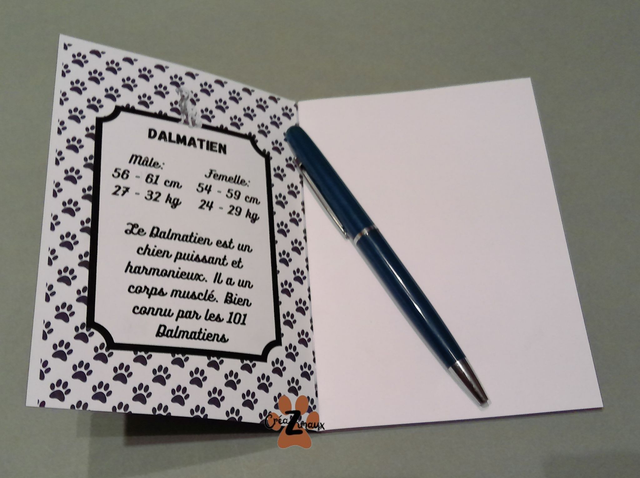 DALMATIEN
Mâle:
56 - 61 cm
27 - 32 kg
Femelle:
54 - 59 cm
24 - 29 kg
Le Dalmatien est un
chien puissant et
harmonieux. Il a un
corps musclé. Bien
connu par les 101
Dalmatiens
CréaZ'maux